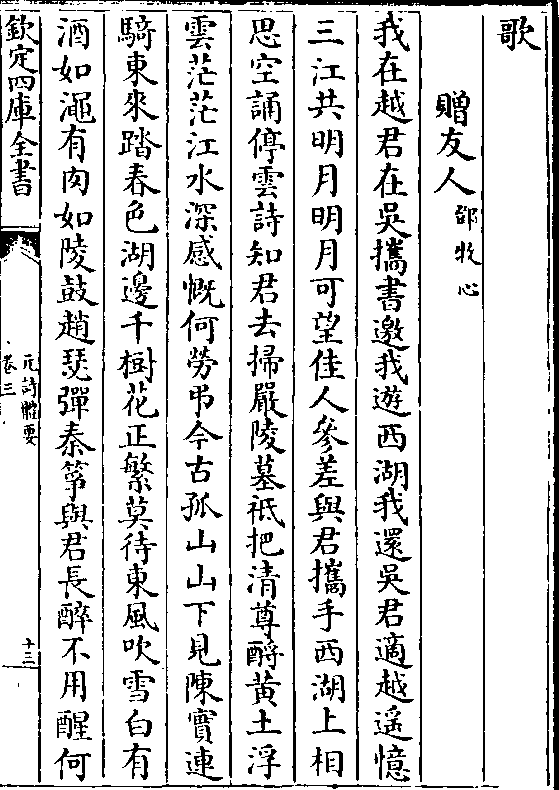 歌
贈友人 邵牧心
我在越君在吳攜書邀我遊西湖我還吳君適越遥憶
三江共明月明月可望佳人參差與君攜手西湖上相
思空誦停雲詩知君去掃嚴陵墓祗把清尊酹黄土浮
雲茫茫江水深感慨何勞弔今古孤山山下見陳實連
騎東來踏春色湖邊千樹花正繁莫待東風吹雪白有
酒如澠有肉如陵鼓趙瑟彈秦箏與君長醉不用醒何
欽定四庫全書
元詩體要
卷三
十三